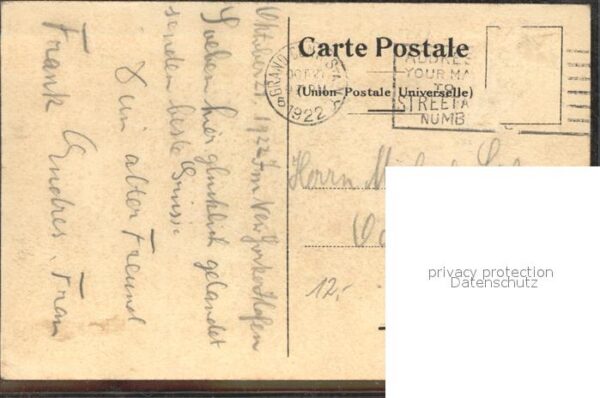 Carte Postale
(Union Postale Universelle)
GRAND
OCT
1922
ADDRE
YOUR MA
TO
STREET A
NUMB
Herrn
12,-
Oktober 21. 1922 Im New Yorker Hafen
Soeben hier glücklich gelandet
senden beste Grüsse
Dein alter Freund
Frank Endres. Frau
privacy protection
Datenschutz